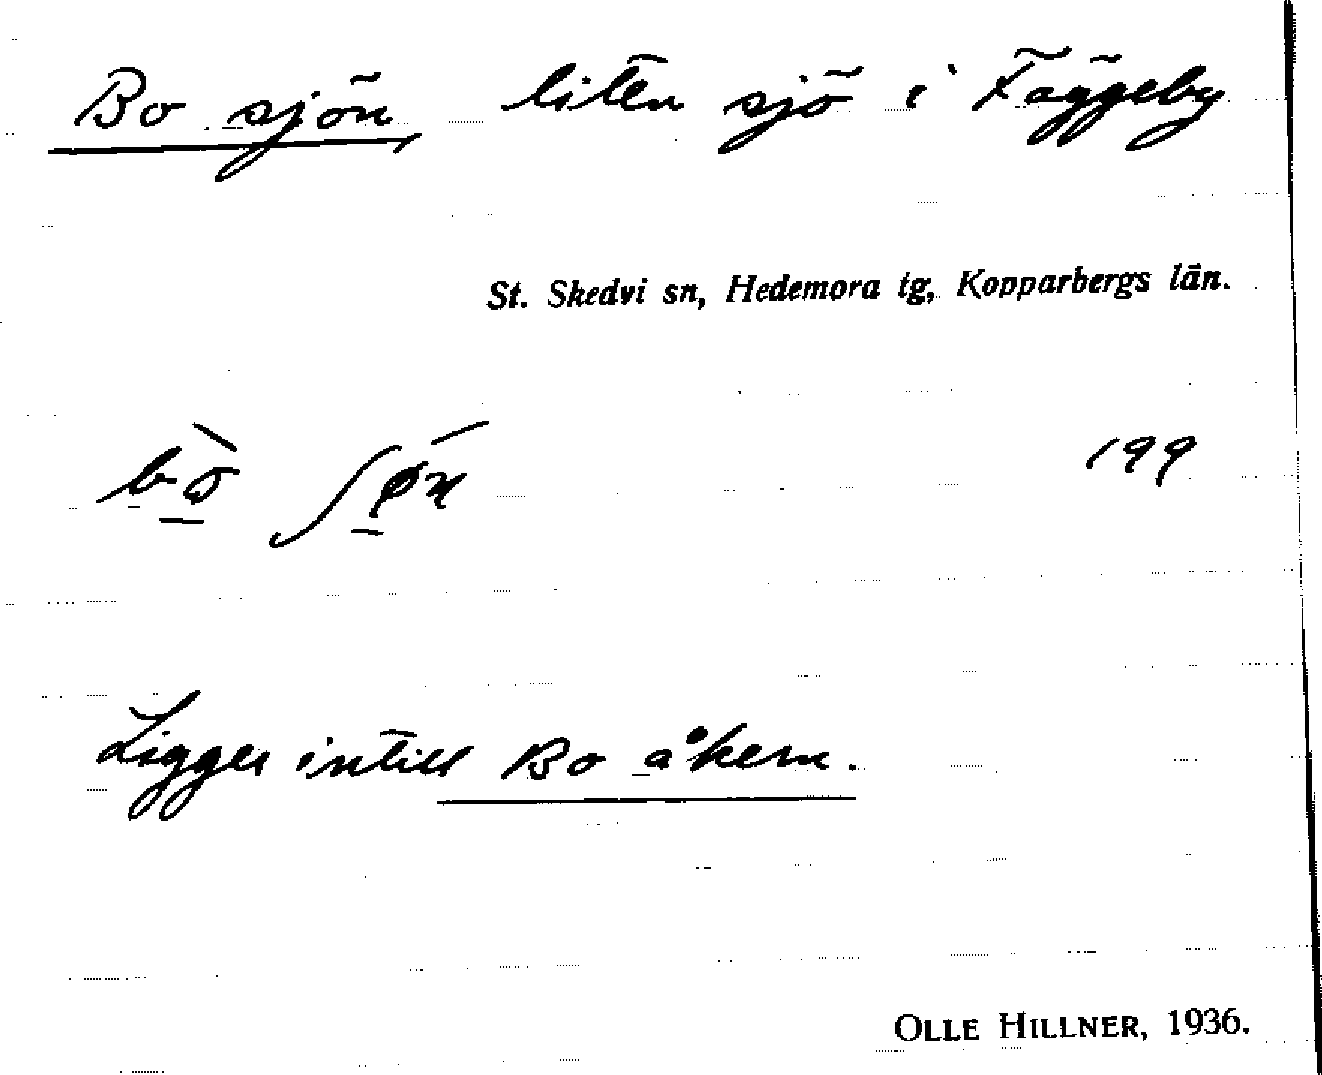 Bo sjön, liten sjö i Fäggeby
St. Skedvi sn, Hedemora tg, Kopparbergs län.
199
Ligger intill Bo åkern.
OLLE HILLNER, 1936.